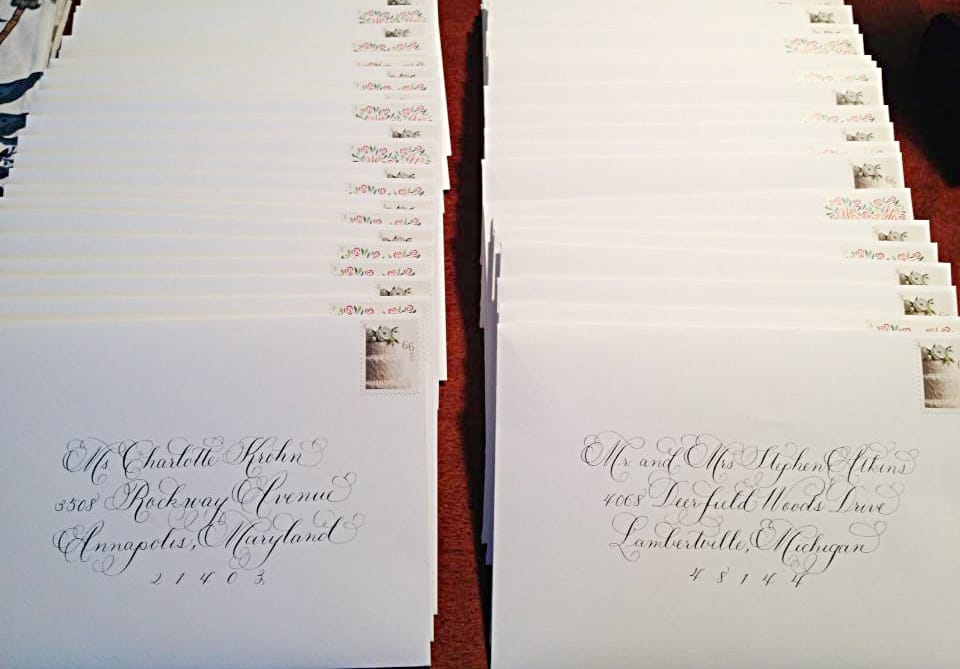 66
66
Ms. Charlotte Krohn
3508 Rockway Avenue
Annapolis, Maryland
21403
Mr and Mrs Stephen Atkins
4068 Deerfield Woods Drive
Lambertville, Michigan
48144